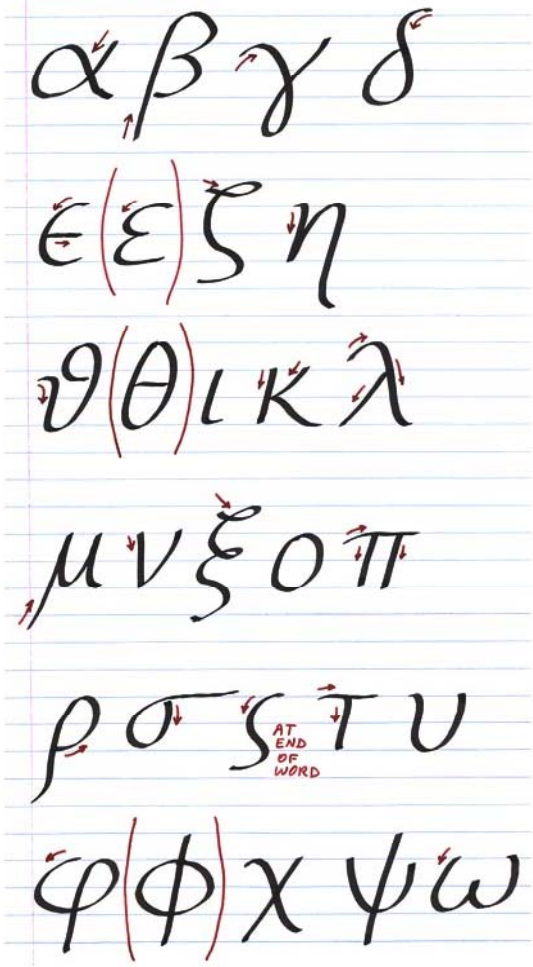 α β γ δ
ϵ (ε) ζ η
ϑ (θ) ι κ λ
μ ν ξ ο π
ρ σ ς AT END OF WORD τ υ
φ (ϕ) χ ψ ω